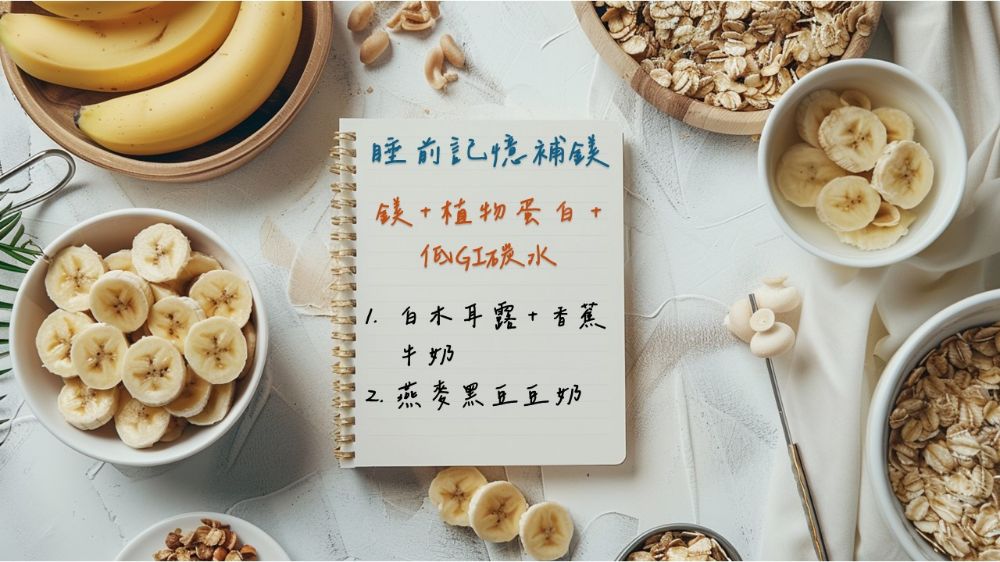 睡前記憶補鎂
鎂+植物蛋白+
低GI碳水
1. 白木耳露+香蕉
牛奶
2. 燕麥黑豆豆奶